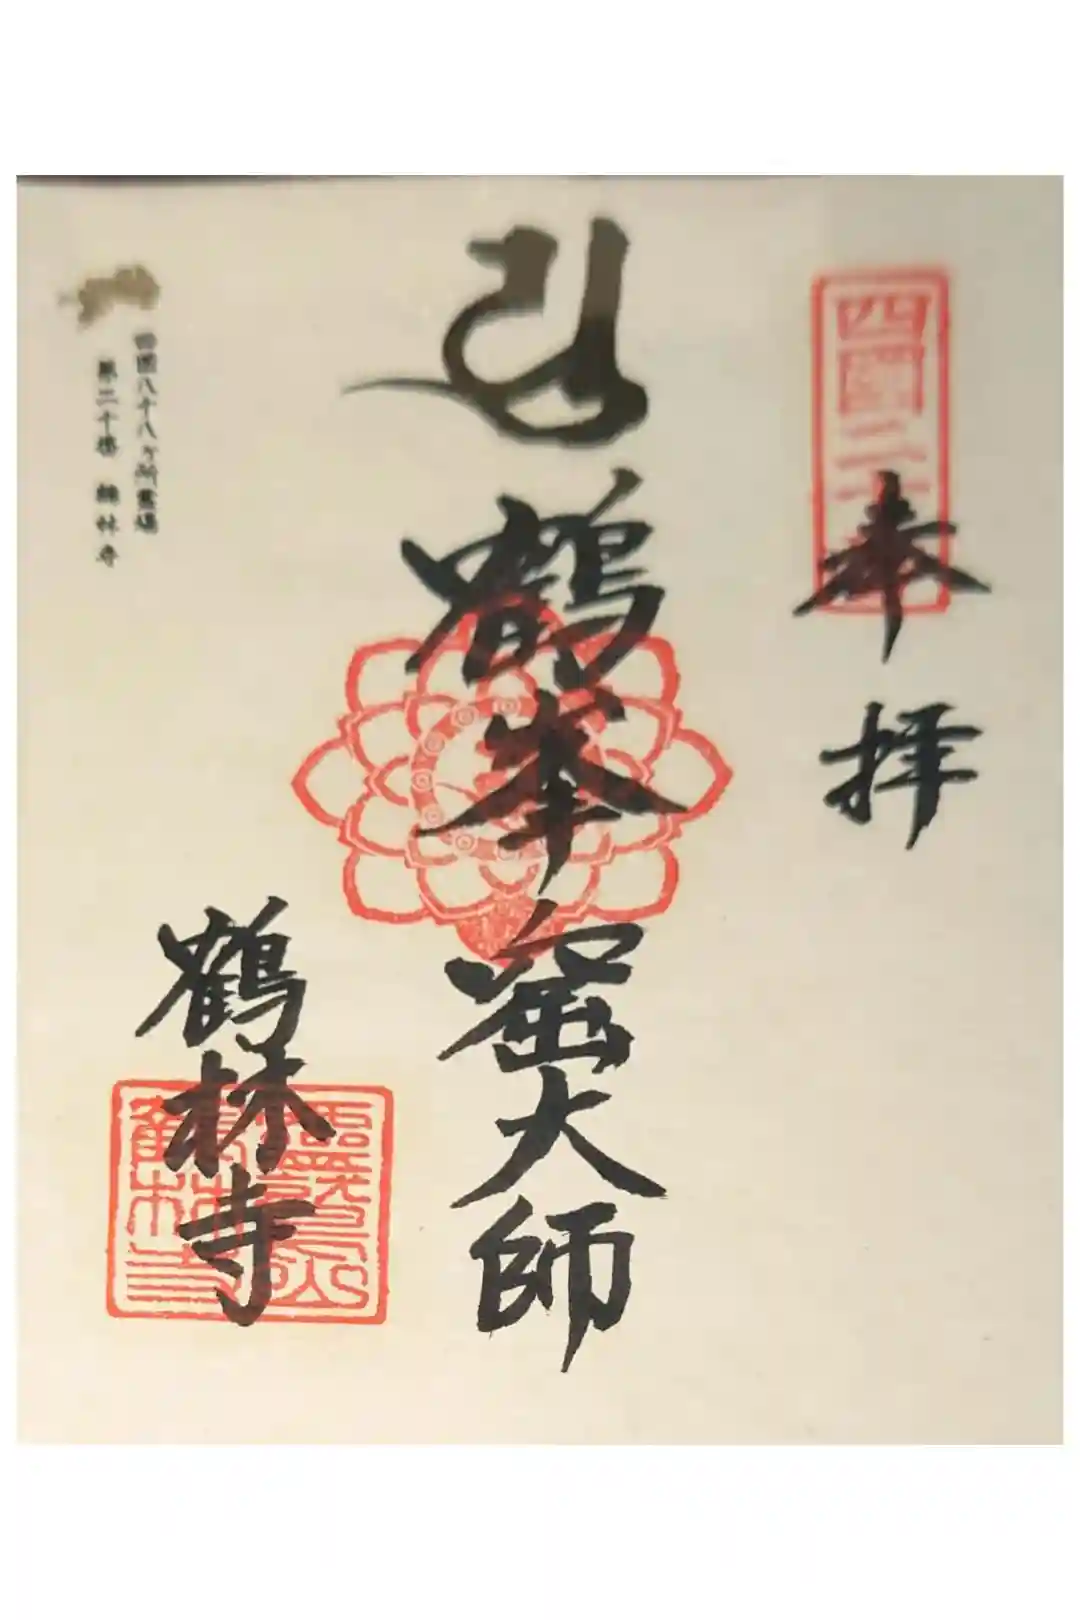 四國二十
奉拝
鶴峯窟大師
鶴林寺
四国八十八ヶ所霊場
第二十番 鶴林寺
鶴林寺